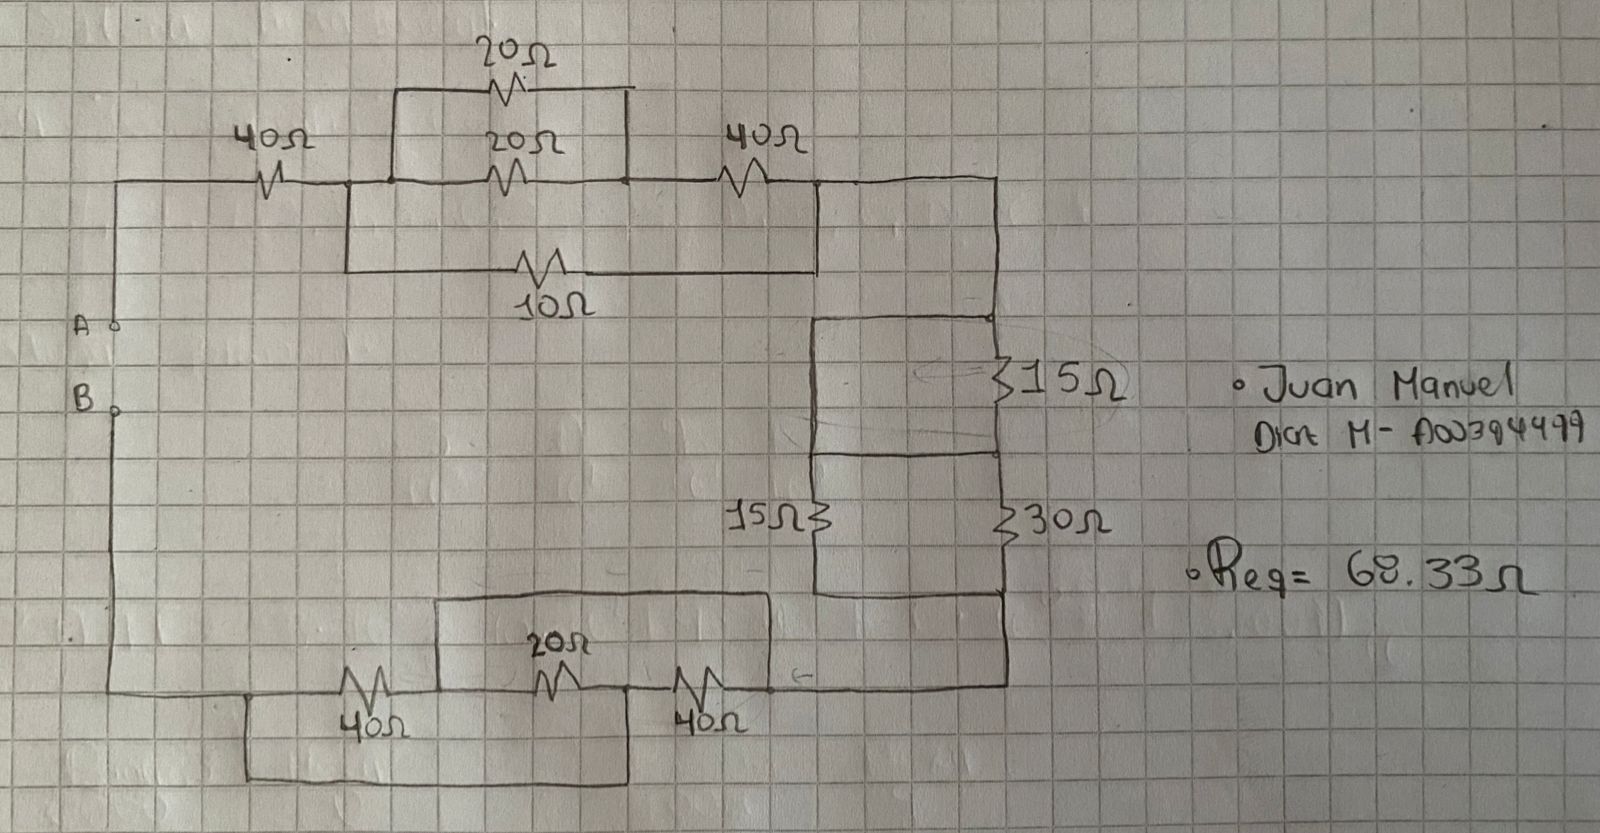 20Ω
40Ω 20Ω 40Ω
10Ω
A
B
15Ω
15Ω 30Ω
20Ω
40Ω 40Ω
• Juan Manuel
M- A00394499
• Req= 68.33Ω